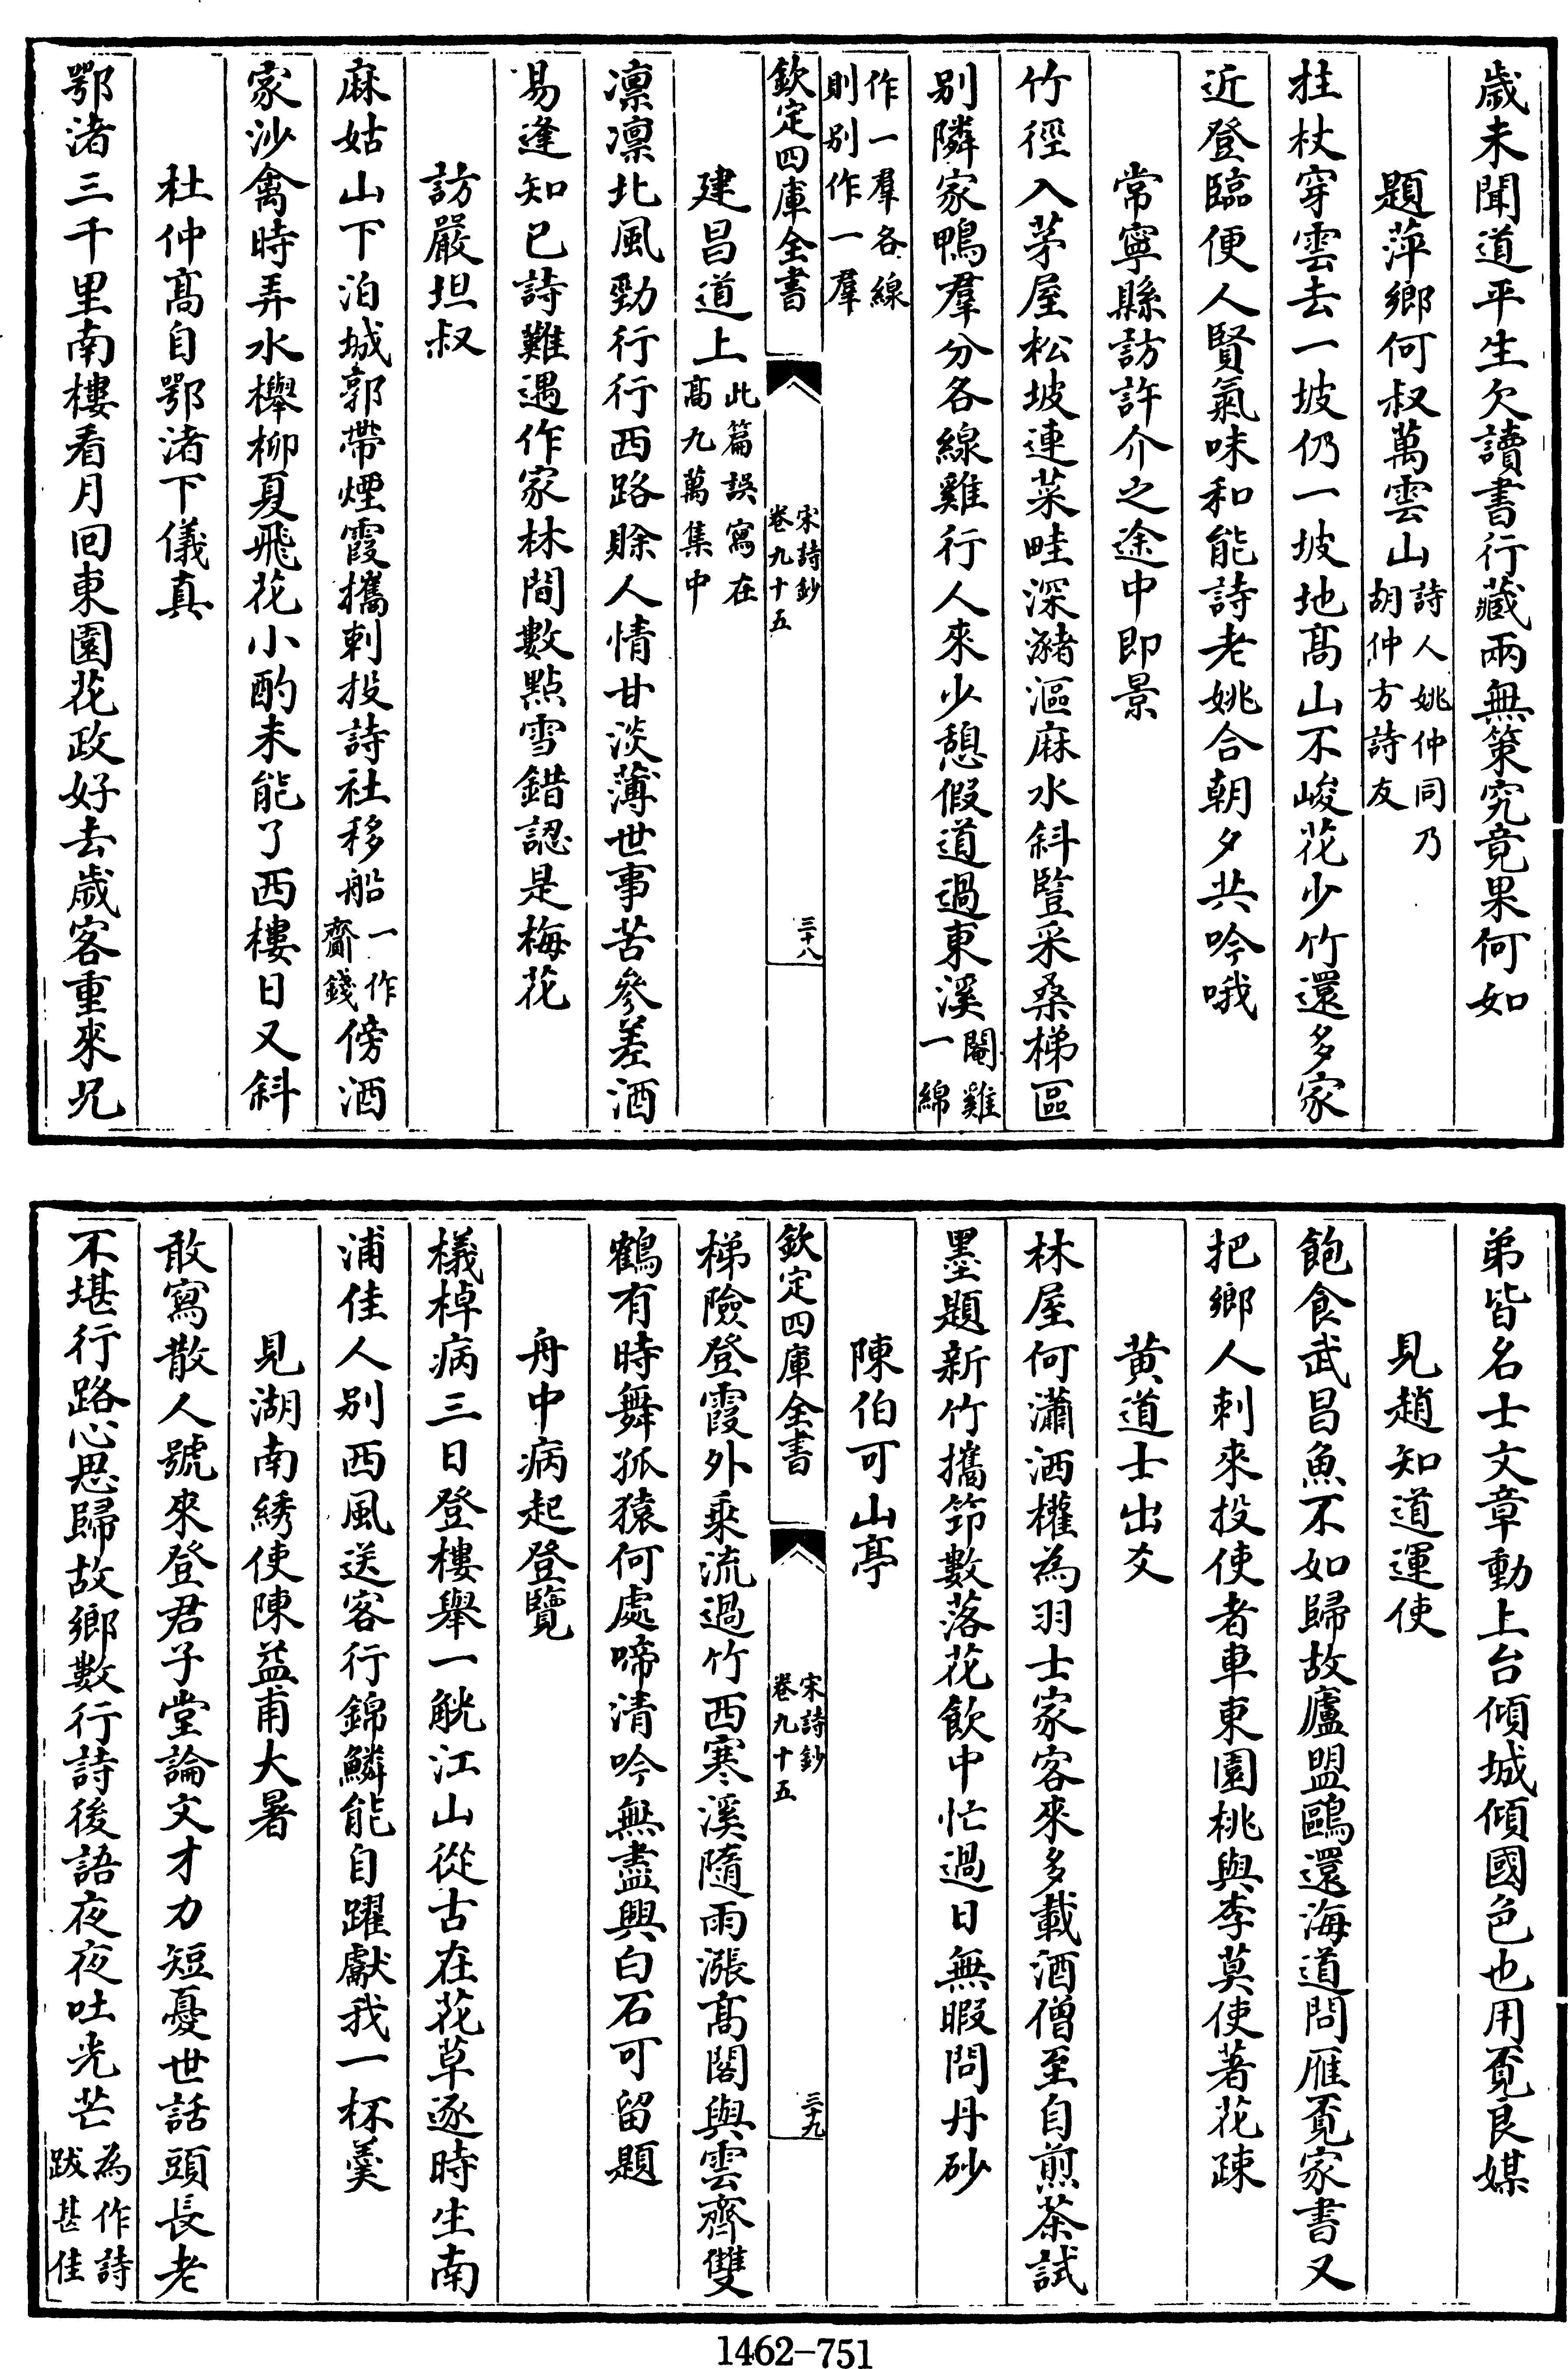 歳未聞道平生欠讀書行藏兩無策究竟果何如
題萍鄉何叔萬雲山詩人姚仲同乃胡仲方詩友
拄杖穿雲去一坡仍一坡地髙山不峻花少竹還多家
近登臨便人賢氣味和能詩老姚合朝夕共吟哦
常寧縣訪許介之途中即景
竹徑入茅屋松坡連菜畦深瀦漚麻水斜豎采桑梯區
别隣家鴨羣分各線雞行人來少憩假道過東溪閹雞一綿
作一羣各線則别作一羣
欽定四庫全書
宋詩鈔
卷九十五
三十八
建昌道上此篇誤寫在髙九萬集中
凛凛北風勁行行西路賖人情甘淡薄世事苦參差酒
易逢知已詩難遇作家林間數點雪錯認是梅花
訪嚴坦叔
麻姑山下泊城郭帶煙霞攜刺投詩社移船一作齎錢傍酒
家沙禽時弄水櫸柳夏飛花小酌未能了西樓日又斜
杜仲髙自鄂渚下儀真
鄂渚三千里南樓看月回東園花政好去歲客重來兄
弟皆名士文章動上台傾城傾國色也用覔良媒
見趙知道運使
飽食武昌魚不如歸故廬盟鷗還海道問雁覔家書又
把鄉人刺來投使者車東園桃與李莫使著花疎
黄道士出爻
林屋何瀟洒權為羽士家客來多載酒僧至自煎茶試
墨題新竹攜笻數落花飲中忙過日無暇問丹砂
陳伯可山亭
欽定四庫全書
宋詩鈔
卷九十五
三十九
梯險登霞外乘流過竹西寒溪隨雨漲髙閣與雲齊雙
鶴有時舞孤猿何處啼清吟無盡興白石可留題
舟中病起登覽
檥棹病三日登樓舉一觥江山從古在花草逐時生南
浦佳人别西風送客行錦鱗能自躍獻我一杯羹
見湖南綉使陳益甫大暑
敢寫散人號來登君子堂論文才力短憂世話頭長老
不堪行路心思歸故鄉數行詩後語夜夜吐光芒為作詩跋甚佳
1462-751